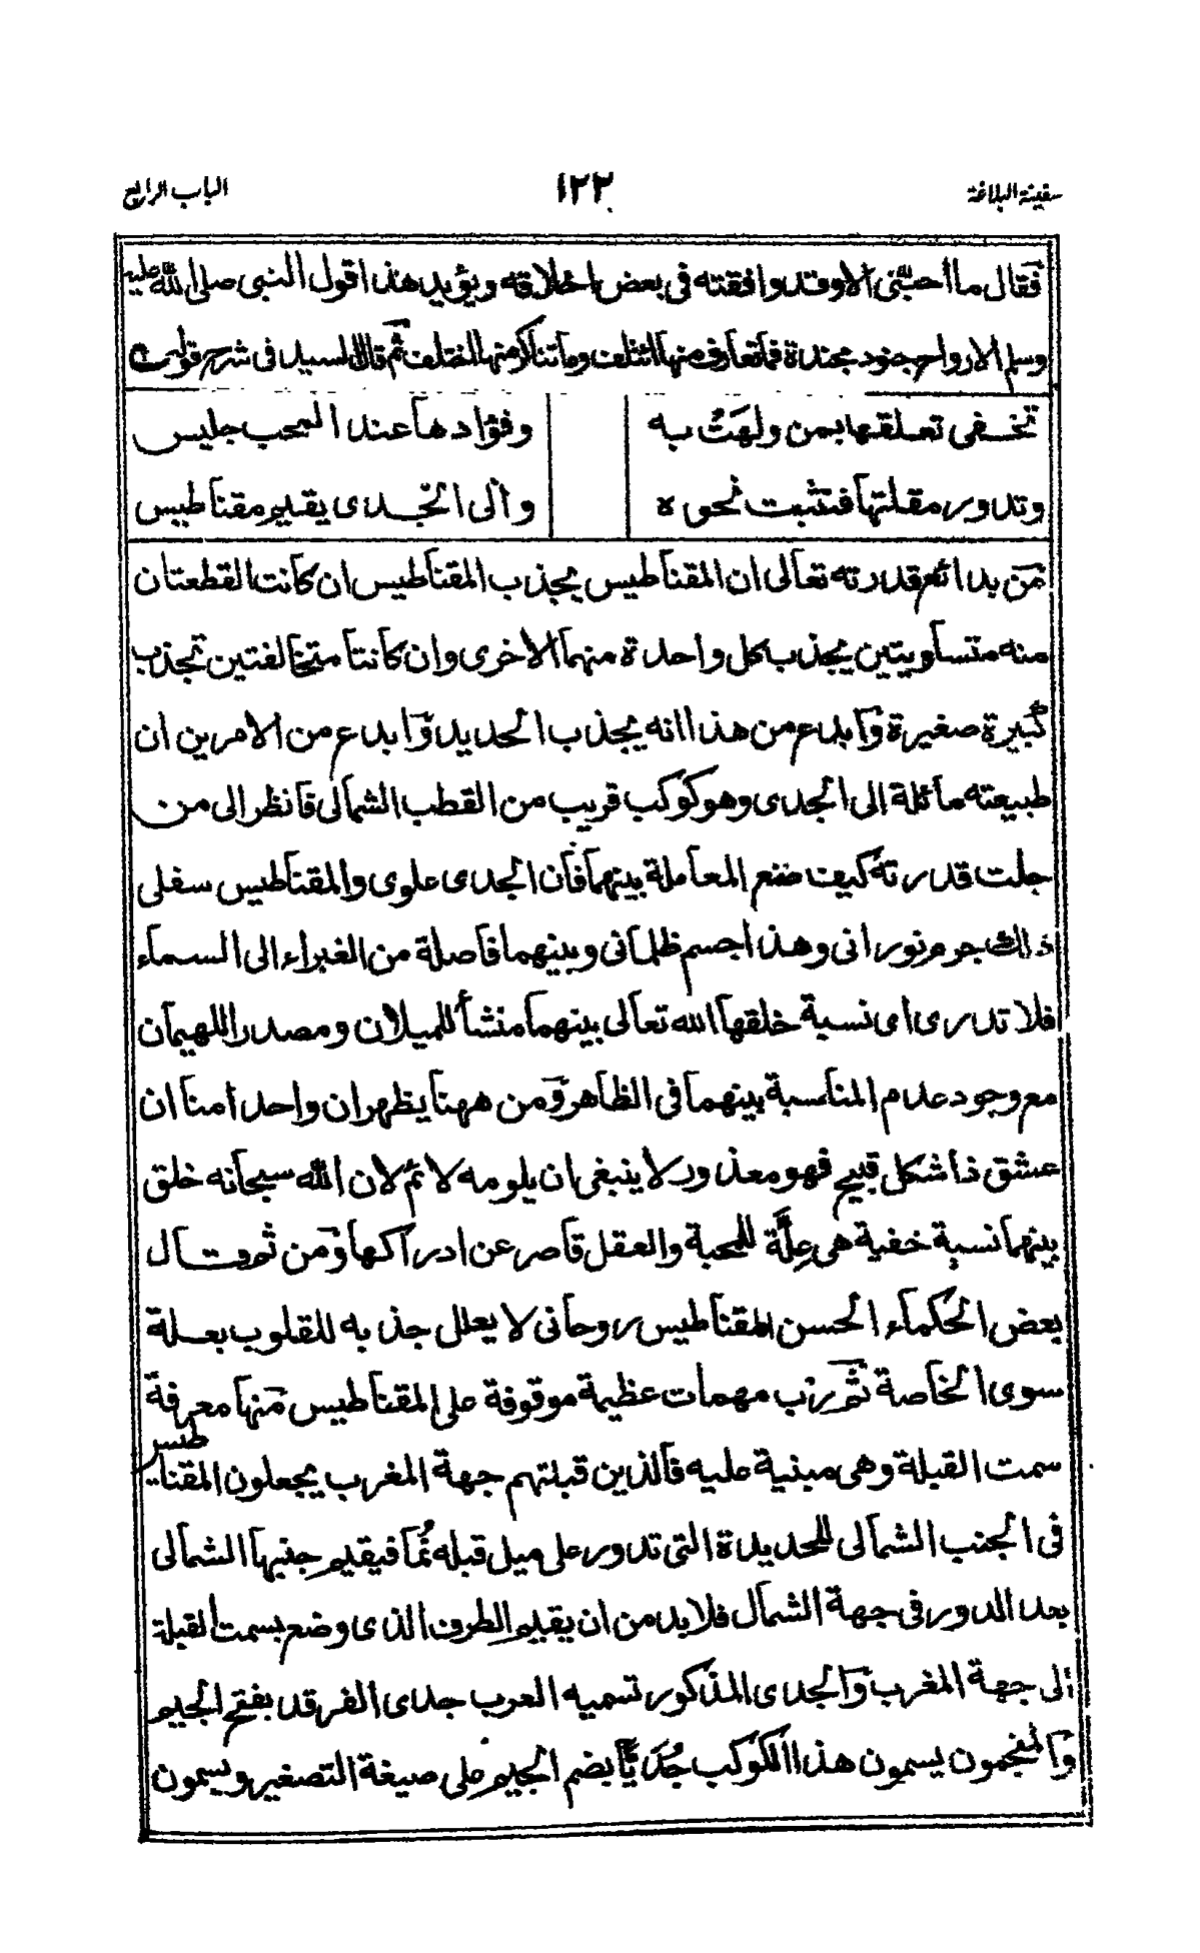 سفينة البلاغة ١٢٢ الباب الرابع
فقال ما احبّنى الا وقد وافقته فى بعض اخلاقه ويؤيد هذا قول النبى صلى الله عليه
وسلم الارواح جنود مجندة فما تعارف منها ائتلف وما تناكر منها اختلف ثم قال السيد فى شرح قوله
تخفى تعلقها بمن ولهَتْ به وفؤادها عند المحب جليس
وتدور مقلتها فتثبت نحوه والى الجدى يقيم مقناطيس
من بدائع قدرته تعالى ان المقناطيس يجذب المقناطيس ان كانت القطعتان
منه متساويتين يجذب كل واحدة منهما الاخرى وان كانتا متخالفتين تجذب
كبيرة صغيرة وابدع من هذا انه يجذب الحديد وابدع من الامرين ان
طبيعته مائلة الى الجدى وهو كوكب قريب من القطب الشمالى فانظر الى من
جلت قدرته كيف صنع المعاملة بينهما فان الجدى علوى والمقناطيس سفلى
ذلك جرم نورانى وهذا جسم ظلمانى وبينهما فاصلة من الغبراء الى السماء
فلا تدرى اى نسبة خلقها الله تعالى بينهما منشأ للميلان ومصدرا للهيمان
مع وجود عدم المناسبة بينهما فى الظاهر ومن ههنا يظهر ان واحدا منا ان
عشق ذا شكل قبيح فهو معذور لا ينبغى ان يلومه لائم لان الله سبحانه خلق
بينهما نسبة خفية هى علّة للمحبة والعقل قاصر عن ادراكها ومن ثم قال
بعض الحكماء الحسن المقناطيس روحانى لا يعلل جذبه للقلوب بعلة
سوى الخاصة ثم رُبّ مهمات عظيمة موقوفة على المقناطيس منها معرفة
سمت القبلة وهى مبنية عليه فالذين قبلتهم جهة المغرب يجعلون المقناطيس
فى الجنب الشمالى للحديدة التى تدور على ميل قبله نُما فيقيم جنبها الشمالى
بعد الدور فى جهة الشمال فلا بد من ان يقيم الطرف الذى وضع بسمت القبلة
الى جهة المغرب والجدى المذكور تسميه العرب جدى الفرقد بفتح الجيم
والمنجمون يسمون هذا الكوكب جُدَيًّا بضم الجيم على صيغة التصغير ويسمون